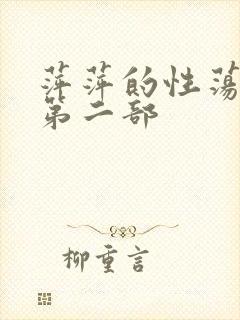 萍萍的性荡
第二部
柳重言